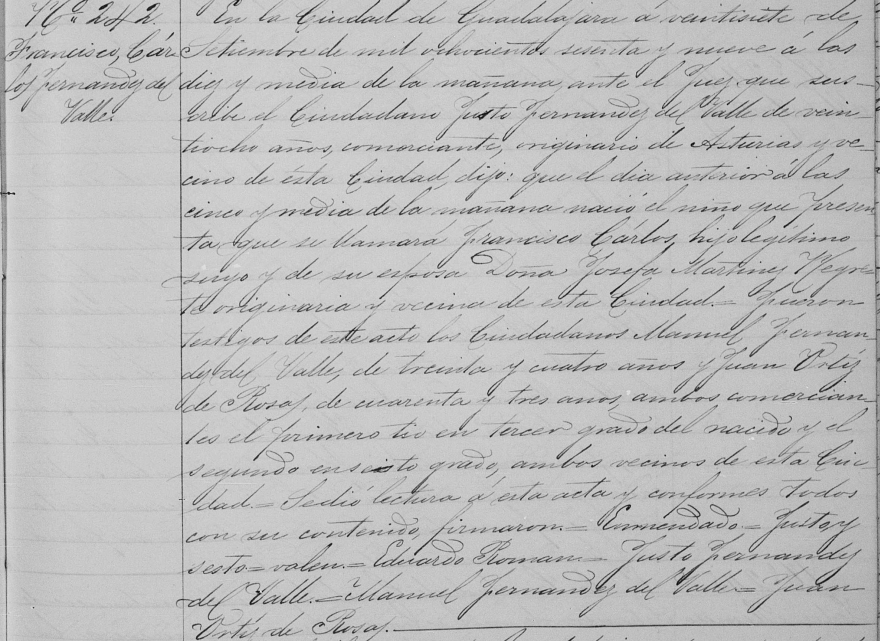 No. 242.
Francisco, Cár-
los Fernandez del
Valle.
En la Ciudad de Guadalajara á veintisiete de
Setiembre de mil ochocientos sesenta y nueve á las
diez y media de la mañana, ante el Juez que sus-
cribe el Ciudadano Justo Fernandez del Valle de vein-
tiocho años, comerciante, originario de Asturias y ve-
cino de esta Ciudad, dijo: que el dia anterior á las
cinco y media de la mañana nació el niño que presen-
ta, que se llamará Francisco Cárlos, hijo legítimo
suyo y de su esposa Doña Josefa Martinez Negre-
te originaria y vecina de esta Ciudad.= Fueron
testigos de este acto los Ciudadanos Manuel Fernan-
dez del Valle, de treinta y cuatro años y Juan Ortíz
de Rosas, de cuarenta y tres anos, ambos comercian-
tes el primero tio en tercer grado del nacido y el
segundo en sesto grado, ambos vecinos de esta Ciu-
dad.= Se dió lectura á esta acta y conformes todos
con su contenido, firmaron.= Enmendado.= Justo y
sesto= valen.= Eduardo Roman.= Justo Fernandez
del Valle.= Manuel Fernandez del Valle= Juan
Ortíz de Rosas.